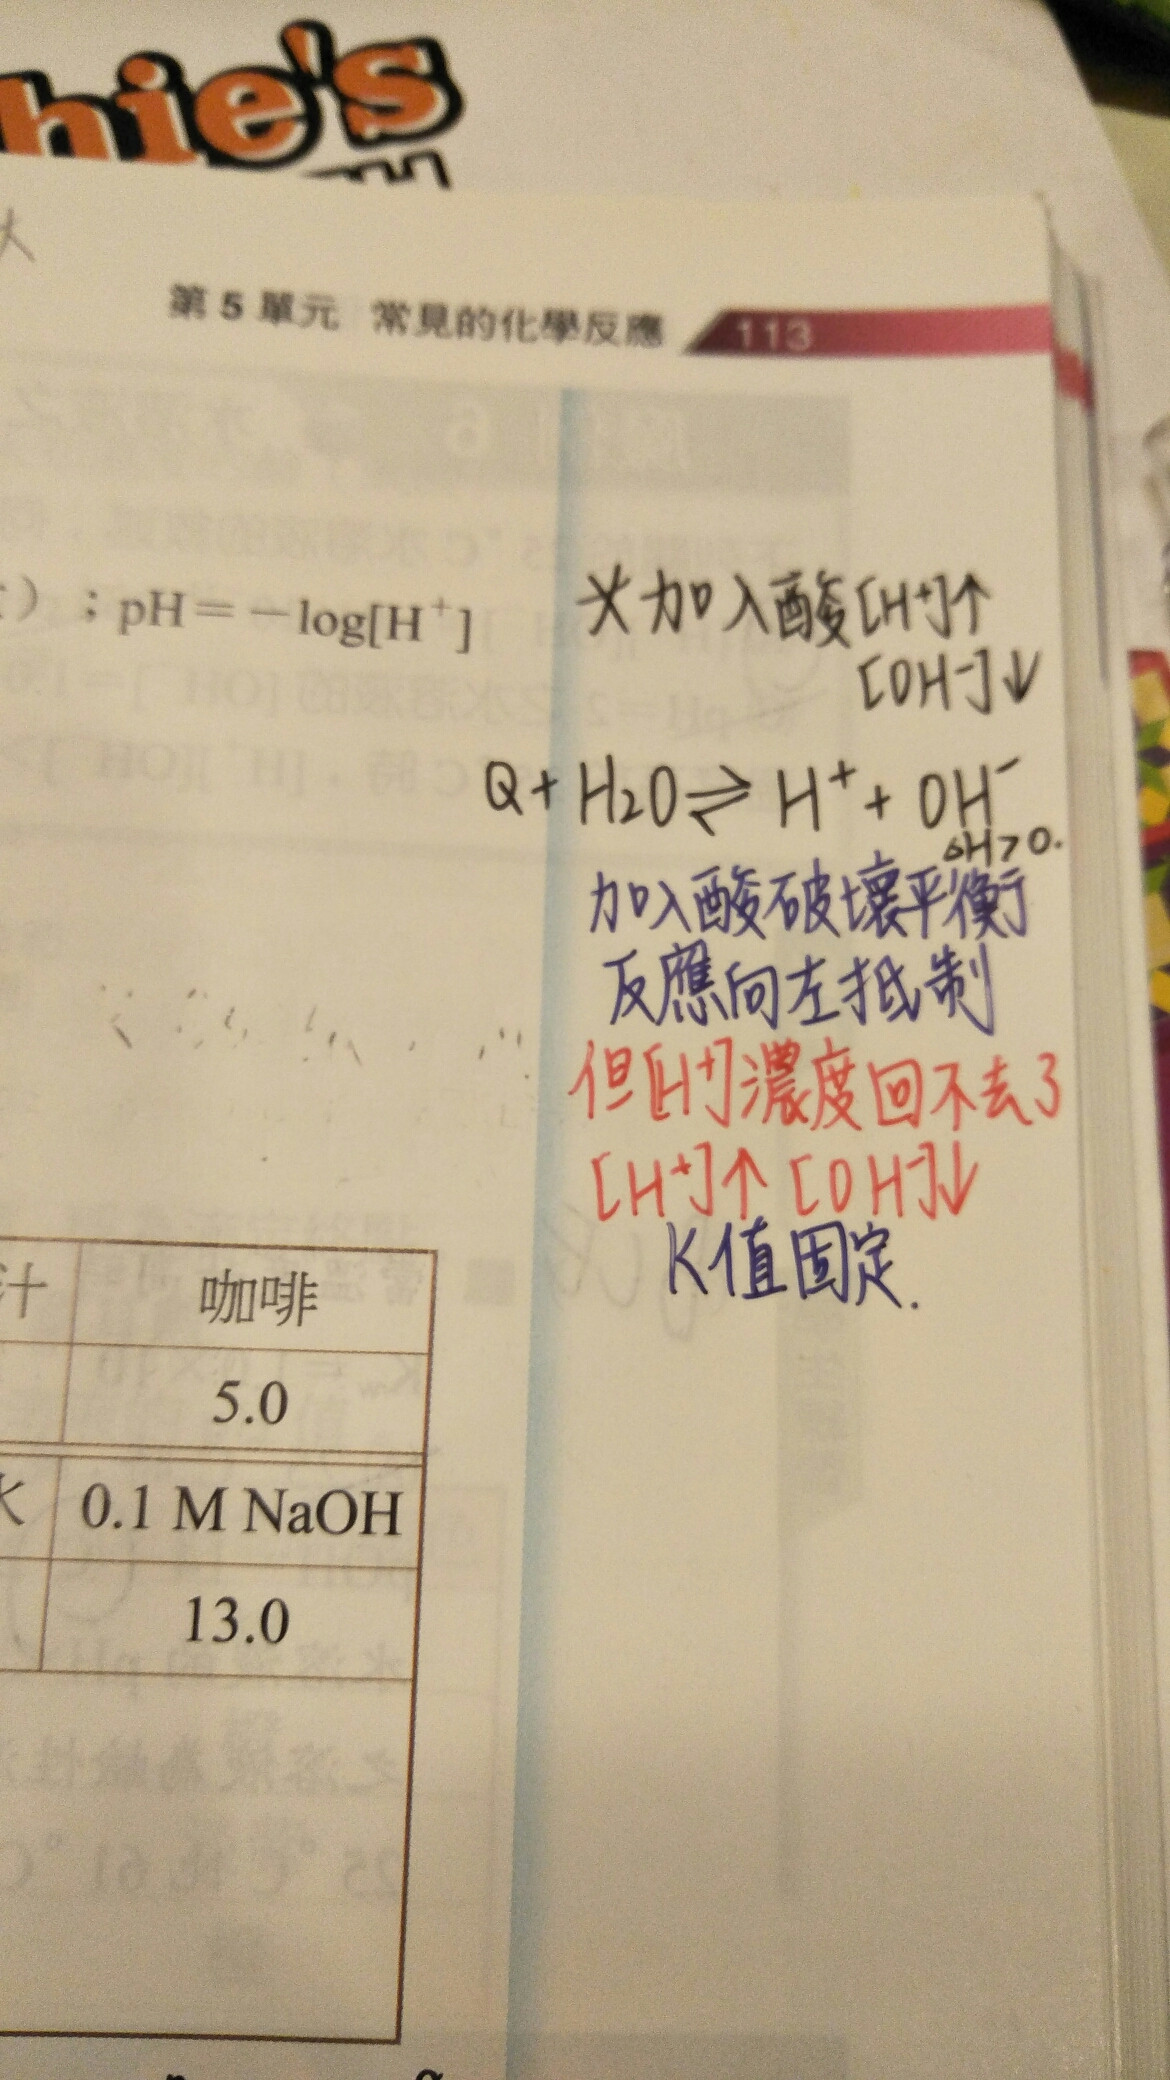 hie's
第 5 單元 常見的化學反應 113
) ; pH＝－log[H⁺]
※加入酸[H⁺]↑
[OH⁻]↓
Q + H₂O ⇌ H⁺ + OH⁻
ΔH > 0.
加入酸破壞平衡
反應向左抵制
但[H⁺]濃度回不去了
[H⁺]↑ [OH⁻]↓
K值固定.
汁 咖啡
5.0
水 0.1 M NaOH
13.0